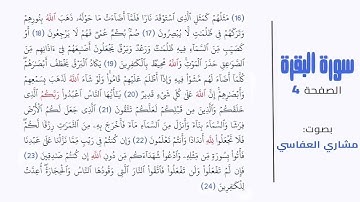 (16) مَثَلُهُمْ كَمَثَلِ الَّذِى اسْتَوْقَدَ نَارًا فَلَمَّا أَضَاءَتْ مَا حَوْلَهُ، ذَهَبَ اللَّهُ بِنُورِهِمْ
وَتَرَكَهُمْ فِى ظُلُمَتٍ لَّا يُبْصِرُونَ (17) صُمٌّ بُكْمٌ عُمْىٌ فَهُمْ لَا يَرْجِعُونَ (18) أَوْ
كَصَيِّبٍ مِّنَ السَّمَاءِ فِيهِ ظُلُمَتٌ وَرَعْدٌ وَبَرْقٌ يَجْعَلُونَ أَصَبِعَهُمْ فِى ءَاذَانِهِم مِّنَ
الصَّوَعِقِ حَذَرَ الْمَوْتِ وَاللَّهُ مُحِيطٌ بِالْكَفِرِينَ (19) يَكَادُ الْبَرْقُ يَخْطَفُ أَبْصَرَهُمْ
كُلَّمَا أَضَاءَ لَهُم مَّشَوْا فِيهِ وَإِذَا أَظْلَمَ عَلَيْهِمْ قَامُوا وَلَوْ شَاءَ اللَّهُ لَذَهَبَ بِسَمْعِهِمْ
وَأَبْصَرِهِمْ إِنَّ اللَّهَ عَلَى كُلِّ شَىْءٍ قَدِيرٌ (20) يَأَيُّهَا النَّاسُ اعْبُدُوا رَبَّكُمُ الَّذِى
خَلَقَكُمْ وَالَّذِينَ مِن قَبْلِكُمْ لَعَلَّكُمْ تَتَّقُونَ (21) الَّذِى جَعَلَ لَكُمُ الْأَرْضَ
فِرَشًا وَالسَّمَاءَ بِنَاءً وَأَنزَلَ مِنَ السَّمَاءِ مَاءً فَأَخْرَجَ بِهِ، مِنَ الثَّمَرَتِ رِزْقًا لَّكُمْ
فَلَا تَجْعَلُوا لِلَّهِ أَندَادًا وَأَنتُمْ تَعْلَمُونَ (22) وَإِن كُنتُمْ فِى رَيْبٍ مِّمَّا نَزَّلْنَا عَلَى عَبْدِنَا
فَأْتُوا بِسُورَةٍ مِّن مِّثْلِهِ، وَادْعُوا شُهَدَاءَكُم مِّن دُونِ اللَّهِ إِن كُنتُمْ صَدِقِينَ (23)
فَإِن لَّمْ تَفْعَلُوا وَلَن تَفْعَلُوا فَاتَّقُوا النَّارَ الَّتِى وَقُودُهَا النَّاسُ وَالْحِجَارَةُ أُعِدَّتْ
لِلْكَفِرِينَ (24)
سورة البقرة
الصفحة 4
بصوت:
مشاري العفاسي